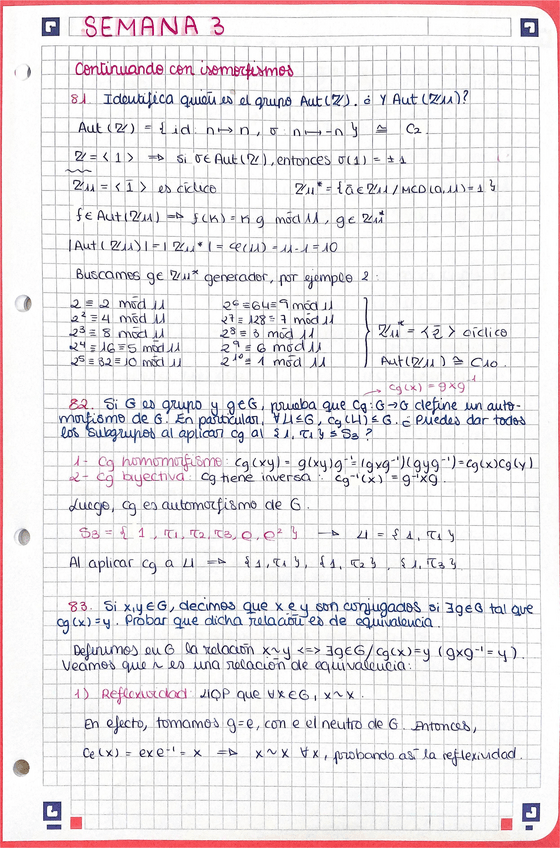 SEMANA 3
Continuando con isomorfismos
81. Identifica quién es el grupo Aut(ℤ). ¿Y Aut(ℤ11)?
Aut(ℤ) = {id: n↦n, σ: n↦-n} ≅ C2.
ℤ = <1> ⇒ si σ∈Aut(ℤ), entonces σ(1) = ±1
ℤ11 = <1̄> es cíclico    ℤ11* = {ā∈ℤ11 / MCD(a,11)=1}
f∈Aut(ℤ11) ⇒ f(k) = k g mód 11, g∈ℤ11*
|Aut(ℤ11)| = |ℤ11*| = φ(11) = 11-1 = 10
Buscamos g∈ℤ11* generador, por ejemplo 2:
2 ≡ 2 mód 11    2⁶ ≡ 64 ≡ 9 mód 11
2² ≡ 4 mód 11    2⁷ ≡ 128 ≡ 7 mód 11
2³ ≡ 8 mód 11    2⁸ ≡ 3 mód 11    ℤ11* = <2̄> cíclico
2⁴ ≡ 16 ≡ 5 mód 11    2⁹ ≡ 6 mód 11
2⁵ ≡ 32 ≡ 10 mód 11    2¹⁰ ≡ 1 mód 11    Aut(ℤ11) ≅ C10.
→ cg(x) = gxg⁻¹
82. Si G es grupo y g∈G, prueba que cg: G→G define un auto-
morfismo de G. En particular, ∀H≤G, cg(H) ≤ G. ¿Puedes dar todos
los subgrupos al aplicar cg al {1, τ1} ≤ S3?
1- cg homomorfismo: cg(xy) = g(xy)g⁻¹ = (gxg⁻¹)(gyg⁻¹) = cg(x)cg(y)
2- cg biyectiva: cg tiene inversa: cg⁻¹(x) = g⁻¹xg.
Luego, cg es automorfismo de G.
S3 = {1, τ1, τ2, τ3, ρ, ρ²} → H = {1, τ1}
Al aplicar cg a H ⇒ {1, τ1}, {1, τ2}, {1, τ3}
83. Si x,y∈G, decimos que x e y son conjugados si ∃g∈G tal que
cg(x)=y. Probar que dicha relación es de equivalencia.
Definimos en G la relación x~y <=> ∃g∈G/cg(x)=y (gxg⁻¹=y).
Veamos que ~ es una relación de equivalencia:
1) Reflexividad: HQP que ∀x∈G, x~x.
En efecto, tomamos g=e, con e el neutro de G. Entonces,
Ce(x) = exe⁻¹ = x ⇒ x~x ∀x, probando así la reflexividad.